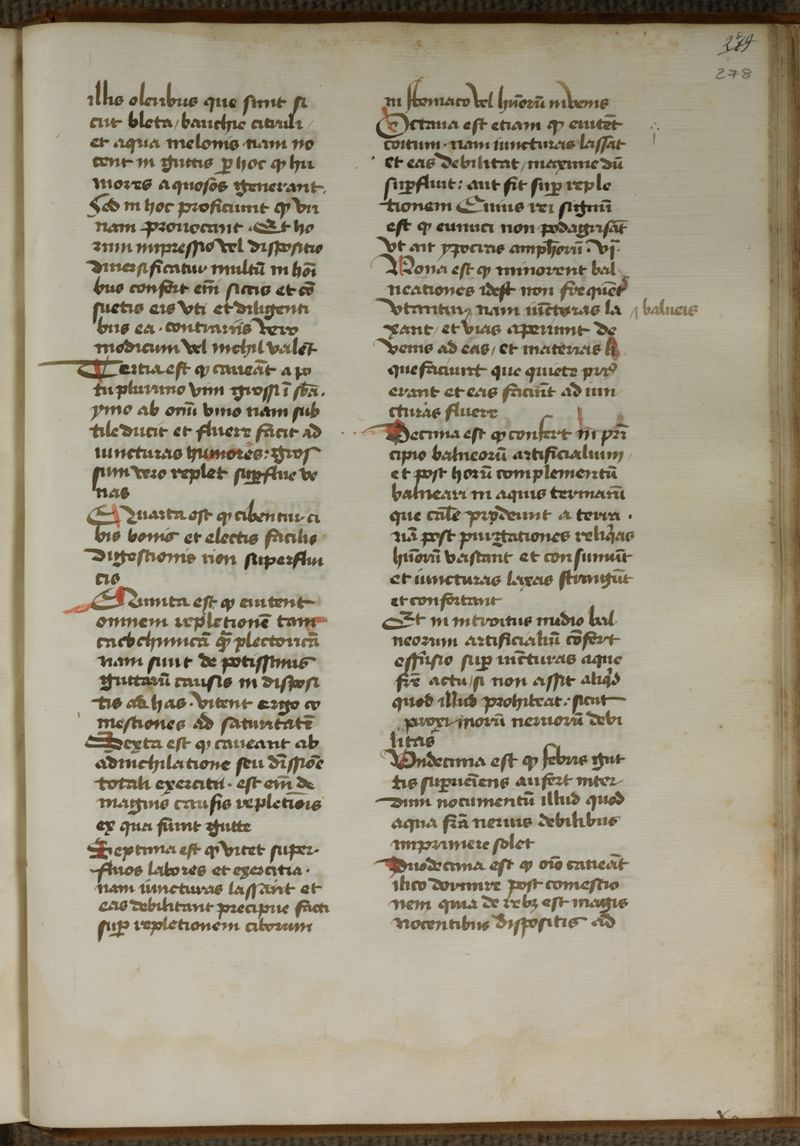 279
278
illis oleribus que sunt si
cut bleta / bauchie citruli
et aqua melonis nam no
cent in guttis p hoc q hu
mores aquosos generant.
Sed in hoc proficiunt q vri
nam provocant . Et ho
rum impressio vel dispositio
diversificatur multū in hoī
bus confert em̄ siccis et cō
suetis eis vti et diligenti
bus ea . contrariis vero
modicum vel nichil valēt
Tertia est q caveāt a po
tu plurimo vini grossi ī sbā .
ymo ab om̄i vino nam sub
tile ducit et fluere facit ad
iuncturas humores : gros
sum vero replet supflue ve
nas
Quarta est q cibentur ci
bis bonis et electis facilis
digestionis non superflui
cis
Quinta est q evitent
omnem repletionē tam
cacochimicā q̄ plectoricā
nam sunt de potissimis
guttarū causis in disposi
tis ad has . vitent ergo co
mestiones ad saturitatē
Sexta est q caveant ab
adnichilatione seu dīssiōe
totali exercitii . est em̄ de
magnis causis repletiōis
ex qua fiunt gutte
Septima est q vitet super-
fluos labores et exercitia .
nam iuncturas lassant et
eas debilitant precipue facti
sup repletionem ciborum
in stomaco vel hūorū in venis
Octava est etiam q evitēt
coitum . nam iuncturas lassāt
et eas debilitat / maxime dū
supfluit : aut fit sup reple
tionem Cuius rei signū
est q eunuci non podagrisāt
vt ait ypocras amphorū . vi .
Nona est q minorent bal
neationes idest non frequēt
vtantur / nam iūcturas la / balneis
xant / et vias aperiunt de
venis ad eas / et materias
que faciunt que quiete pri9
erant et eas faciūt ad iun
cturas fluere
Decima est q confert in prī
cipio balneorū artificialium /
et post horū complementū
balneari in aquis termarū
que calē prodeunt a terra .
nā post purgationes reliqas
hūorū vastant et consumūt
et iuncturas laxas stringūt
et confortant
Et in introitus nudio bal
neorum artificialiū cōfert
effusio sup iūcturas aque
frē actu / si non assit aliqd
quod illud prohibeat . sicut
proximorū nervorū debi
litas
Undecima est q febris gut
tis supveniens aufert inter
dum nocumentū illud quod
aqua frā nervis debilibus
imprimere solet
Duodecima est q oīo caveāt
ilico dormire post comestio
nem quia de rebz est magis
nocentibus dispositis ad